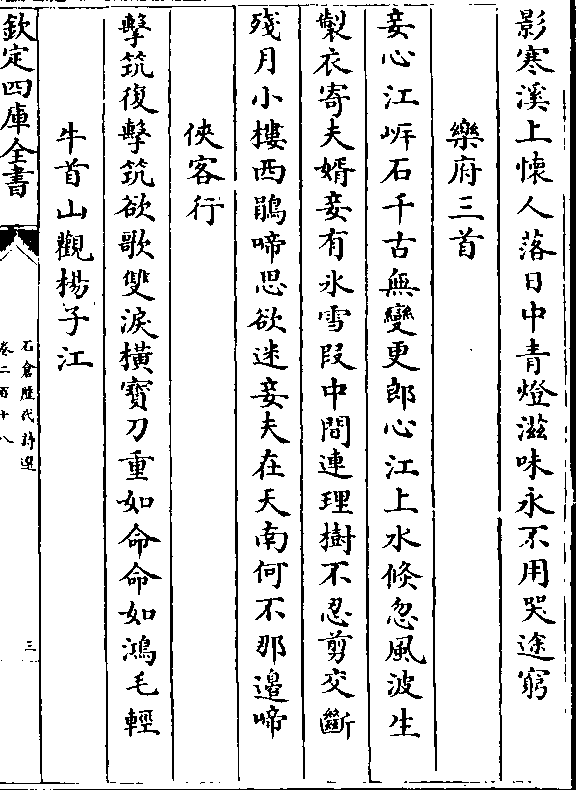 影寒溪上懷人落日中青燈滋味永不用哭途窮
樂府三首
妾心江岍石千古無變更郎心江上水倐忽風波生
製衣寄夫婿妾有氷雪段中間連理樹不忍剪交斷
殘月小樓西鵑啼思欲迷妾夫在天南何不那邉啼
俠客行
擊筑復擊筑欲歌雙淚橫寳刀重如命命如鴻毛輕
牛首山觀楊子江
欽定四庫全書
石倉歷代詩選
卷二百十八
三